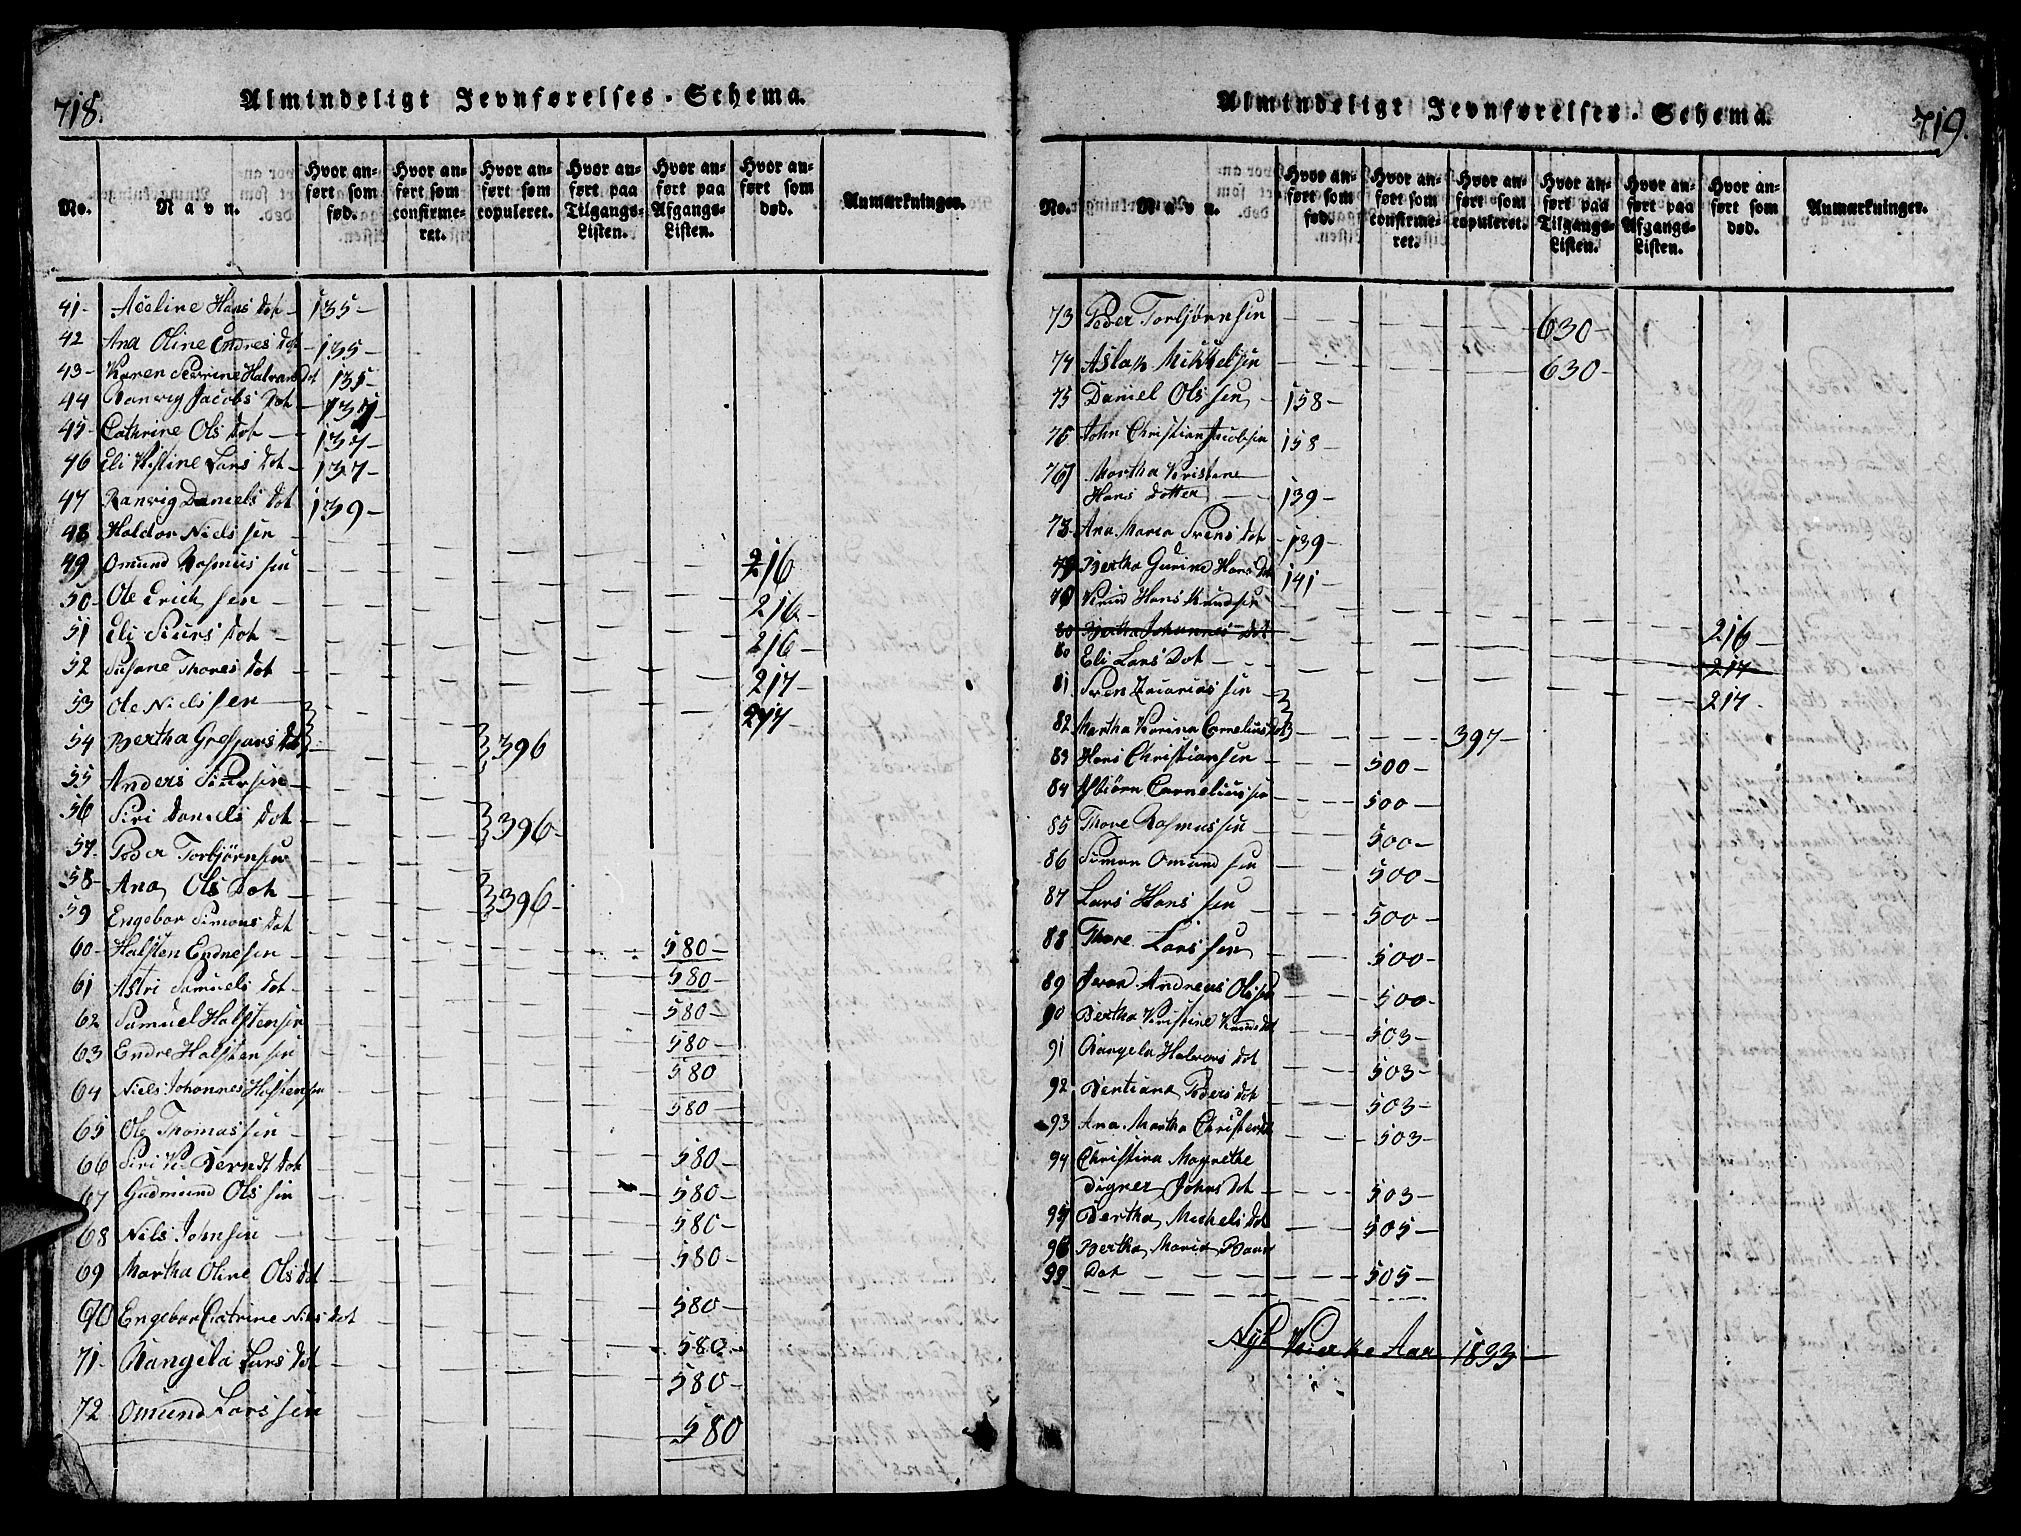 718.
Almindeligt Jevnførelses-Schema.
No.
Navn.
Hvor anført som fød.
Hvor anført som confirmeret.
Hvor anført som copuleret.
Hvor anført paa Tilgangs-Listen.
Hvor anført paa Afgangs-Listen.
Hvor anført som død.
Anmærkninger.
41- Aceline Hans Dot - 135-
42 Ana Oline Endres Dot - 135-
43- Karen Serrine Halvars Dot 135-
44 Ranvig Jacobs Dot - 135
45- Cathrine Ols Dot - 137-
46 Eli Kistine Lars Dot - 137-
47 Ranvig Daniels Dot 139-
48 Haldor Niels sen
49 Omund Rasmus sen 216
50- Ole Erich sen - 216-
51 Eli Siurs Dot - 216-
52 Susane Thores Dot 217-
53 Ole Niels sen 217
54 Bertha Gresjars Dot 396
55 Anders Siursen
56 Siri Daniels Dot 396-
57- Peder Torbjørnsen
58- Ana Ols Dot 396-
59 Engebor Simons Dot
60- Halsten Endresen 580-
61 Astri Samuels Dot 580-
62 Samuel Halstensen 580-
63 Endre Halstensen 580-
64 Niels Johannes Halstensen 580
65 Ole Thomassen 580-
66 Siri K. Berndt Dot 580-
67 Gudmund Ols sen 580-
68 Nils Johnsen 580-
69 Martha Oline Ols Dot 580-
70 Engebor Catrine Nils Dot 580-
71- Rangela Lars Dot 580-
72 Omund Lars sen 580-
580
719.
Almindeligt Jevnførelses-Schema.
No.
Navn.
Hvor anført som fød.
Hvor anført som confirmeret.
Hvor anført som copuleret.
Hvor anført paa Tilgangs-Listen.
Hvor anført paa Afgangs-Listen.
Hvor anført som død.
Anmærkninger.
73 Peder Torbjørnsen 630-
74 Aslak Mikkelsen 630-
75 Daniel Ols sen 158-
76 John Christian Jacobsen 158-
Martha Kristine
Hans Dotter 139-
78 Ana Maria Srens Dot - 139-
Bertha Gurine Hans Dot 141-
Hans Knudsen 216-
80 Bertha Johannes Dot 217
80 Eli Lars Dot - 217-
81 Sren Zacarias sen
82 Martha Karina Cornelius Dot 397-
83 Hans Christiansen 500-
84 Asbiørn Corneliussen 500-
85 Thore Rasmussen 500-
86 Simon Omund sen 500-
87 Lars Hans sen 500-
88 Thore Lars sen 500-
89 Andreas Ols sen 500-
90 Bertha Kristine Knuds Dot 503-
91 Rangela Halvors Dot 503-
92 Bentiana Peders Dot 503-
93 Ana Martha Christens Dot 503-
94 Christina Magrethe
Johns Dot 503-
95 Bertha Michels Dot 505-
96 Bertha Maria
Dot 505-
Nyt Kierke Aar 1833